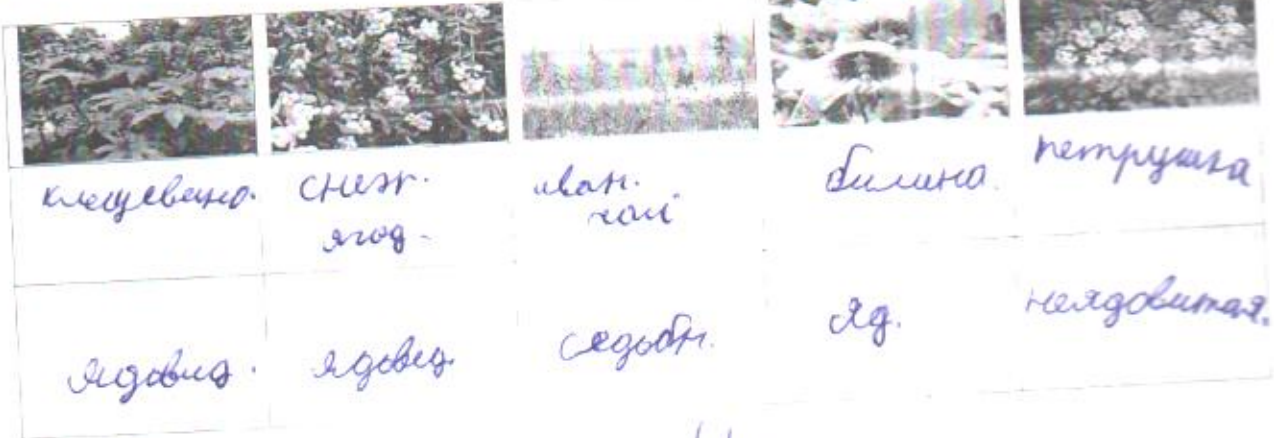 клещевина.
снеж.
ягод.
иван.
чай
билина.
петрушка
ядовид.
ядовид.
седобн.
яд.
неядовитая.